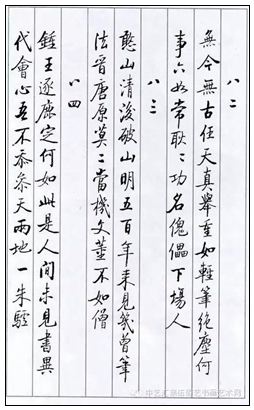 八二
無今無古任天真舉重如輕筆絕塵何
事六如常耿ゝ功名傀儡下場人
八三
憨山清後破山明五百年來見幾曾筆
法晉唐原莫二當機文董不如僧
八四
鍾王逐鹿定何如此是人間未見書異
代會心吾不忝參天兩地一朱驢